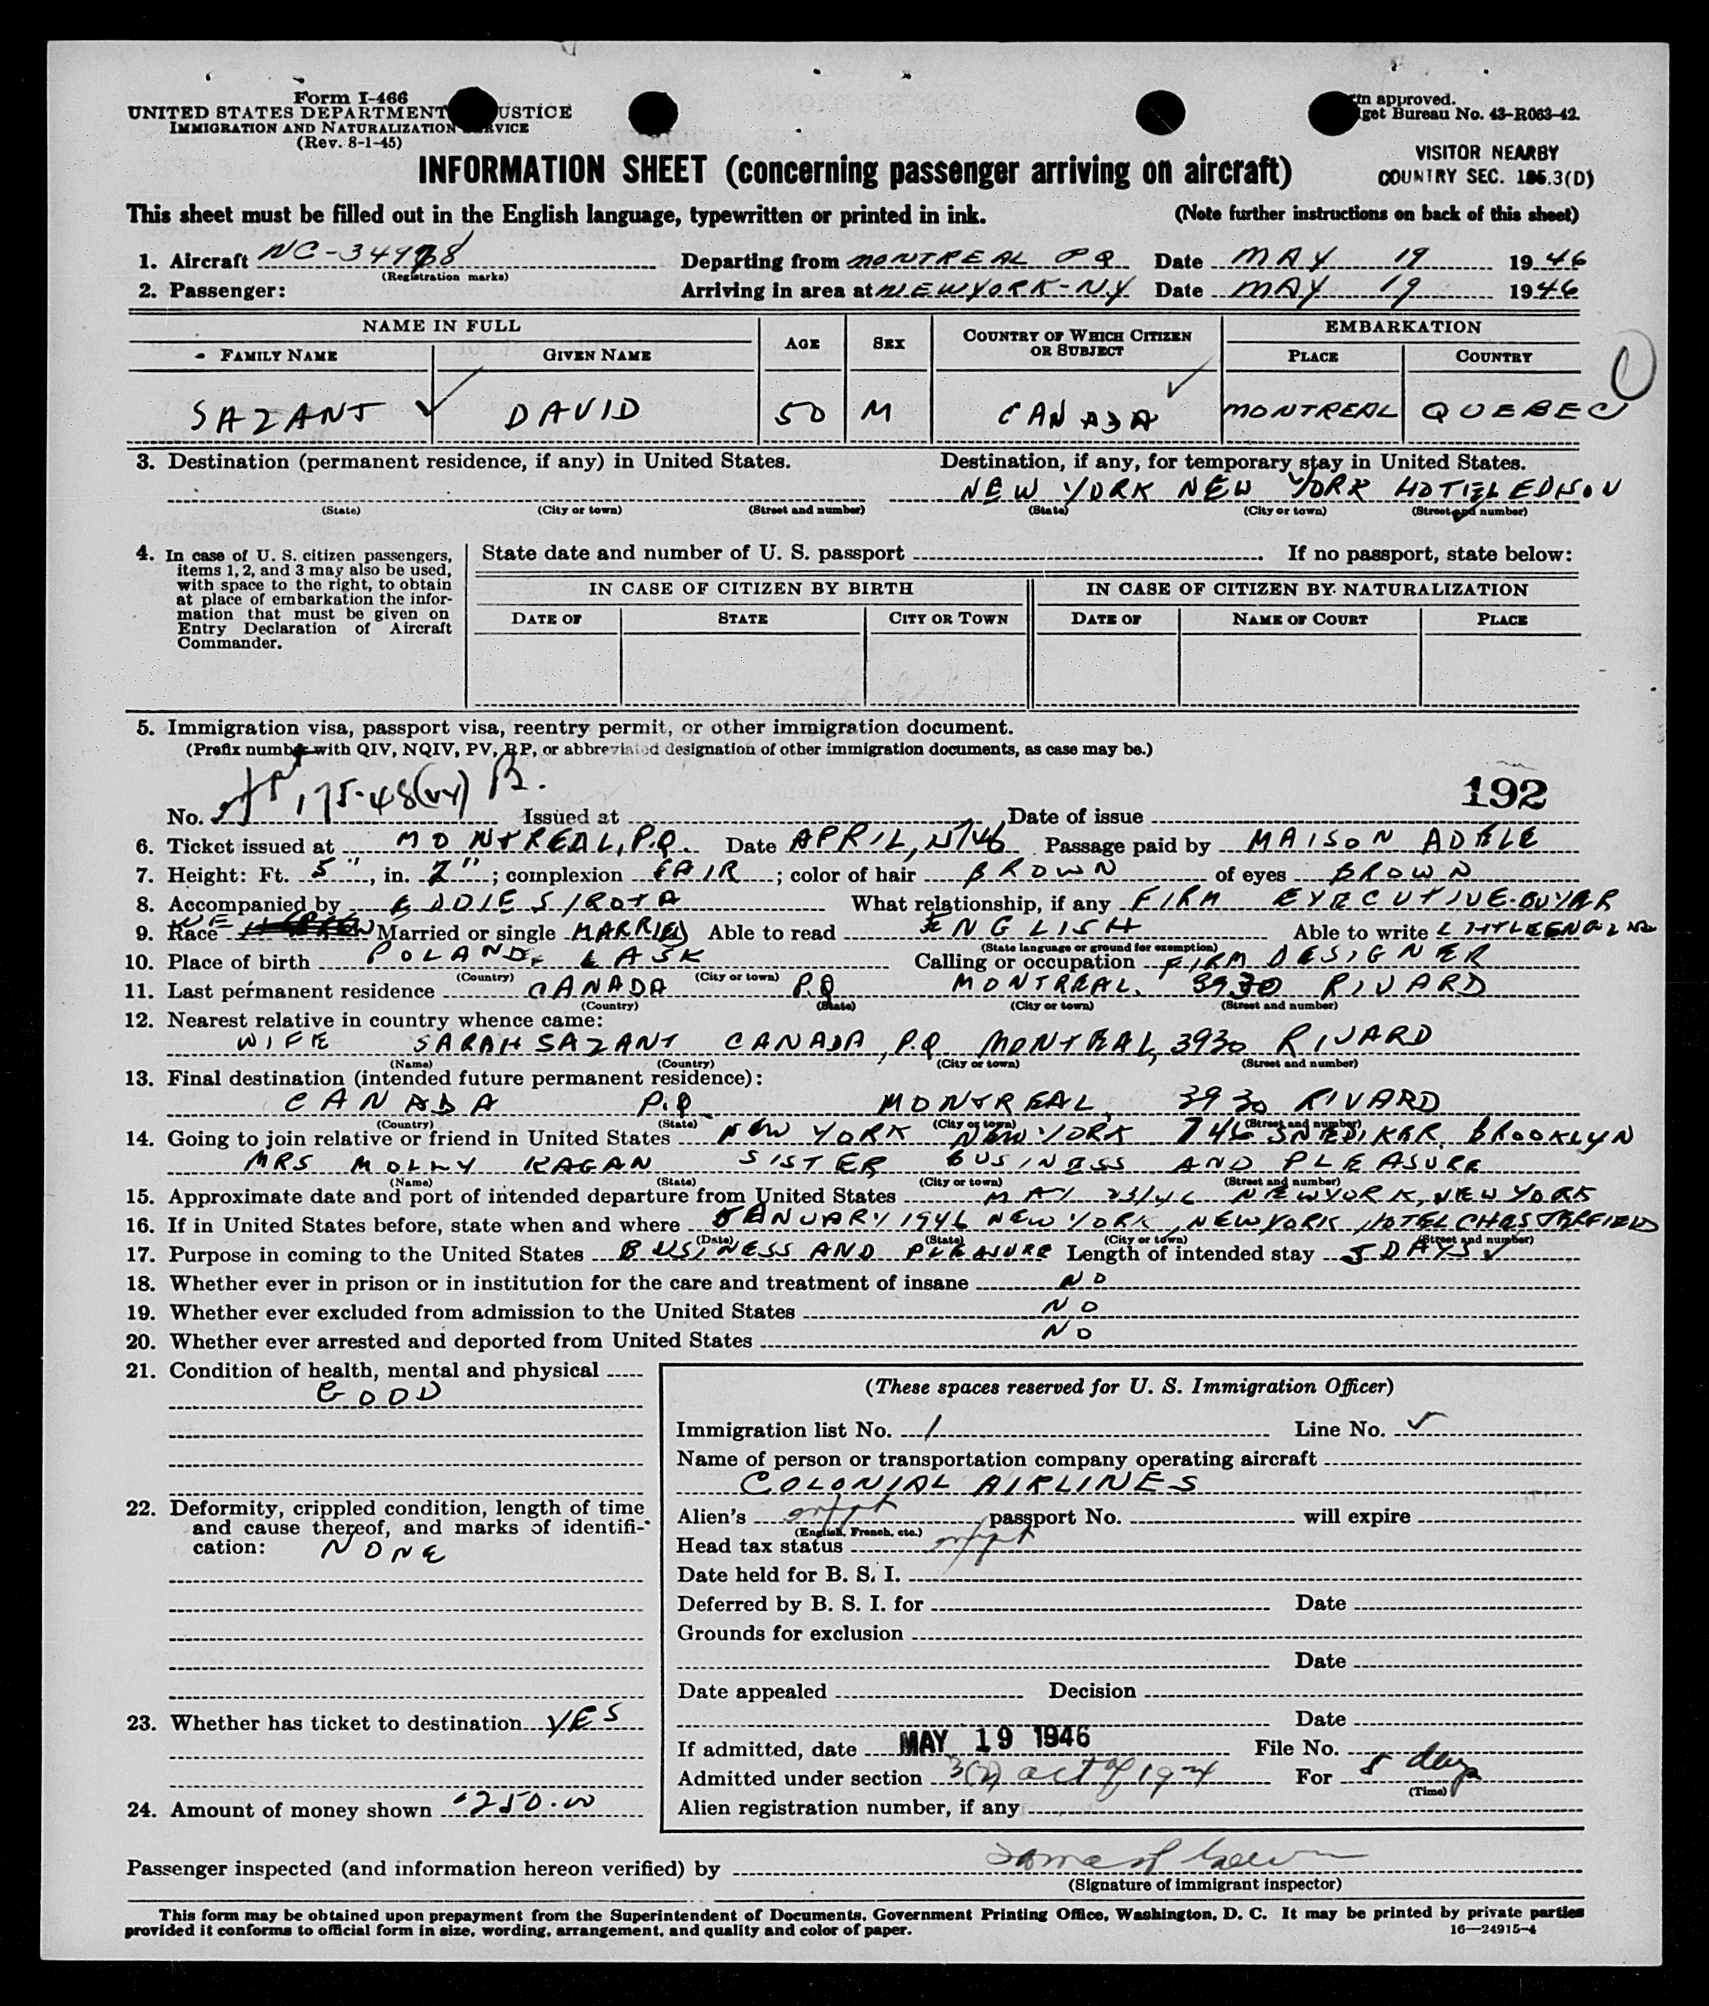 Form I-466
UNITED STATES DEPARTMENT USTICE
IMMIGRATION AND NATURALIZATION RVICE
(Rev. 8-1-45)
m approved.
get Bureau No. 43-R063-42.
INFORMATION SHEET (concerning passenger arriving on aircraft)
VISITOR NEARBY
COUNTRY SEC. 165.3(D)
This sheet must be filled out in the English language, typewritten or printed in ink. (Note further instructions on back of this sheet)
1. Aircraft NC-34978 Departing from MONTREAL PQ Date MAY 19 1946
(Registration marks)
2. Passenger: Arriving in area at NEW YORK-NY Date MAY 19 1946
NAME IN FULL EMBARKATION
FAMILY NAME GIVEN NAME AGE SEX COUNTRY OF WHICH CITIZEN OR SUBJECT PLACE COUNTRY
SAZANT DAVID 50 M CANADA MONTREAL QUEBEC
3. Destination (permanent residence, if any) in United States. Destination, if any, for temporary stay in United States.
NEW YORK NEW YORK HOTEL EDISON
(State) (City or town) (Street and number) (State) (City or town) (Street and number)
4. In case of U. S. citizen passengers, items 1, 2, and 3 may also be used, with space to the right, to obtain at place of embarkation the information that must be given on Entry Declaration of Aircraft Commander.
State date and number of U. S. passport . If no passport, state below:
IN CASE OF CITIZEN BY BIRTH IN CASE OF CITIZEN BY NATURALIZATION
DATE OF STATE CITY OR TOWN DATE OF NAME OF COURT PLACE
5. Immigration visa, passport visa, reentry permit, or other immigration document.
(Prefix number with QIV, NQIV, PV, RP, or abbreviated designation of other immigration documents, as case may be.)
192
No. 175.48 B. Issued at Date of issue
6. Ticket issued at MONTREAL, P.Q. Date APRIL, Passage paid by MAISON ADELE
7. Height: Ft. 5", in. 7"; complexion FAIR; color of hair BROWN of eyes BROWN
8. Accompanied by EDDIE SIROTA What relationship, if any FIRM EXECUTIVE-BUYER
9. Race HEBREW Married or single MARRIED Able to read ENGLISH Able to write LITTLE ENGLISH
(State language or ground for exemption)
10. Place of birth POLAND, LASK Calling or occupation FIRM DESIGNER
(Country) (City or town)
11. Last permanent residence CANADA P.Q MONTREAL. 3930 RIVARD
(Country) (State) (City or town) (Street and number)
12. Nearest relative in country whence came:
WIFE SARAH SAZANT CANADA, P.Q MONTREAL, 3930 RIVARD
(Name) (Country) (City or town) (Street and number)
13. Final destination (intended future permanent residence):
CANADA P.Q MONTREAL, 3930 RIVARD
(Country) (State) (City or town) (Street and number)
14. Going to join relative or friend in United States NEW YORK NEW YORK 746 SNEDIKER BROOKLYN
MRS MOLLY KAGAN SISTER BUSINESS AND PLEASURE
(Name) (State) (City or town) (Street and number)
15. Approximate date and port of intended departure from United States MAY 23/46 NEW YORK, NEW YORK
16. If in United States before, state when and where JANUARY 1946 NEW YORK, NEW YORK, HOTEL CHESTERFIELD
(Date) (State) (City or town) (Street and number)
17. Purpose in coming to the United States BUSINESS AND PLEASURE Length of intended stay 5 DAYS
18. Whether ever in prison or in institution for the care and treatment of insane NO
19. Whether ever excluded from admission to the United States NO
20. Whether ever arrested and deported from United States NO
21. Condition of health, mental and physical
GOOD
22. Deformity, crippled condition, length of time and cause thereof, and marks of identification: NONE
23. Whether has ticket to destination YES
24. Amount of money shown 250.00
(These spaces reserved for U. S. Immigration Officer)
Immigration list No. 1 Line No. 5
Name of person or transportation company operating aircraft
COLONIAL AIRLINES
Alien's passport No. will expire
(English, French, etc.)
Head tax status
Date held for B. S. I.
Deferred by B. S. I. for Date
Grounds for exclusion
Date
Date appealed Decision
Date
If admitted, date MAY 19 1946 File No.
Admitted under section 3(2) act of 1924 For 5 days
(Time)
Alien registration number, if any
Passenger inspected (and information hereon verified) by
(Signature of immigrant inspector)
This form may be obtained upon prepayment from the Superintendent of Documents, Government Printing Office, Washington, D. C. It may be printed by private parties
provided it conforms to official form in size, wording, arrangement, and quality and color of paper. 16—24915-4